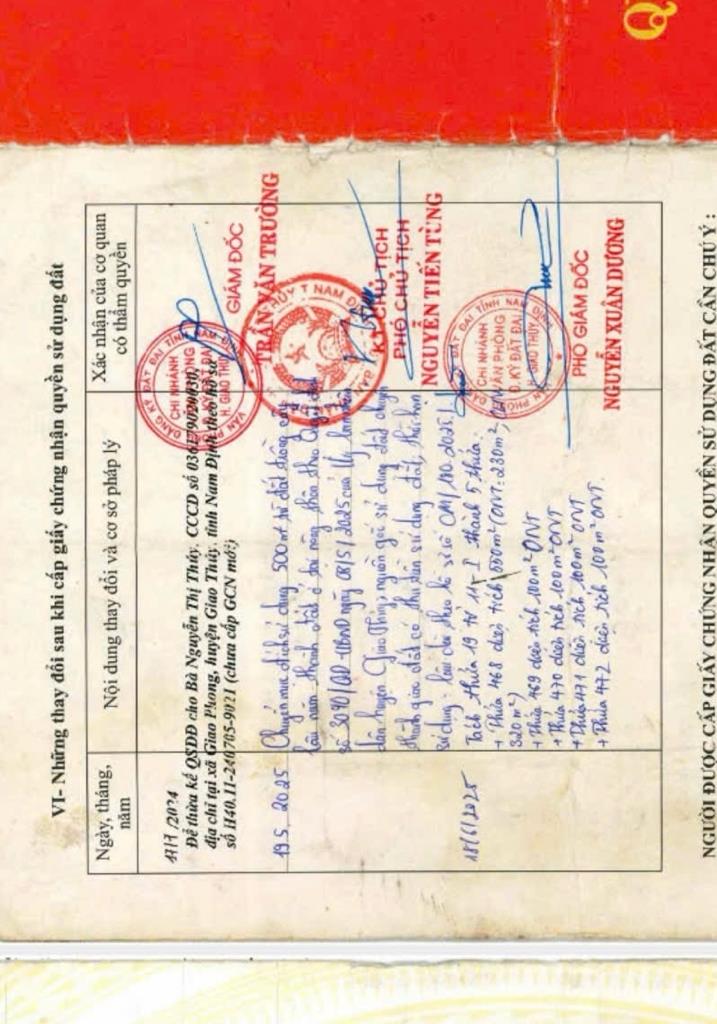 Q
VI- Những thay đổi sau khi cấp giấy chứng nhận quyền sử dụng đất
Ngày, tháng, năm
Nội dung thay đổi và cơ sở pháp lý
Xác nhận của cơ quan có thẩm quyền
17/7/2024
Để thừa kế QSDĐ cho Bà Nguyễn Thị Thủy, CCCD số
địa chỉ tại xã Giao Phong, huyện Giao Thủy, tỉnh Nam Định theo hồ sơ
số H40.11-240705-9021 (chưa cấp GCN mới)
GIÁM ĐỐC
TRẦN VĂN TRƯỜNG
19.5.2025
Chuyển mục đích sử dụng 500m² từ đất trồng cây
lâu năm thành đất ở tại nông thôn theo Quyết định
số 3090/QĐ-UBND ngày 08/5/2025 của Uỷ ban nhân
dân huyện Giao Thủy, nguồn gốc sử dụng đất chuyển
thành giao đất có thu tiền sử dụng đất, thời hạn
sử dụng: lâu dài theo hồ sơ số
KT. CHỦ TỊCH
PHÓ CHỦ TỊCH
NGUYỄN TIẾN TÙNG
18/6/2025
Tách thửa 19 tờ 11-I thành 5 thửa:
+ Thửa 468 diện tích 550m² (ONT: 230m²,
320m²)
+ Thửa 469 diện tích 100m² ONT
+ Thửa 470 diện tích 100m² ONT
+ Thửa 471 diện tích 100m² ONT
+ Thửa 472 diện tích 100m² ONT.
CHI NHÁNH
VĂN PHÒNG
Đ. KÝ ĐẤT ĐAI
H. GIAO THỦY
PHÓ GIÁM ĐỐC
NGUYỄN XUÂN DƯƠNG
NGƯỜI ĐƯỢC CẤP GIẤY CHỨNG NHẬN QUYỀN SỬ DỤNG ĐẤT CẦN CHÚ Ý :